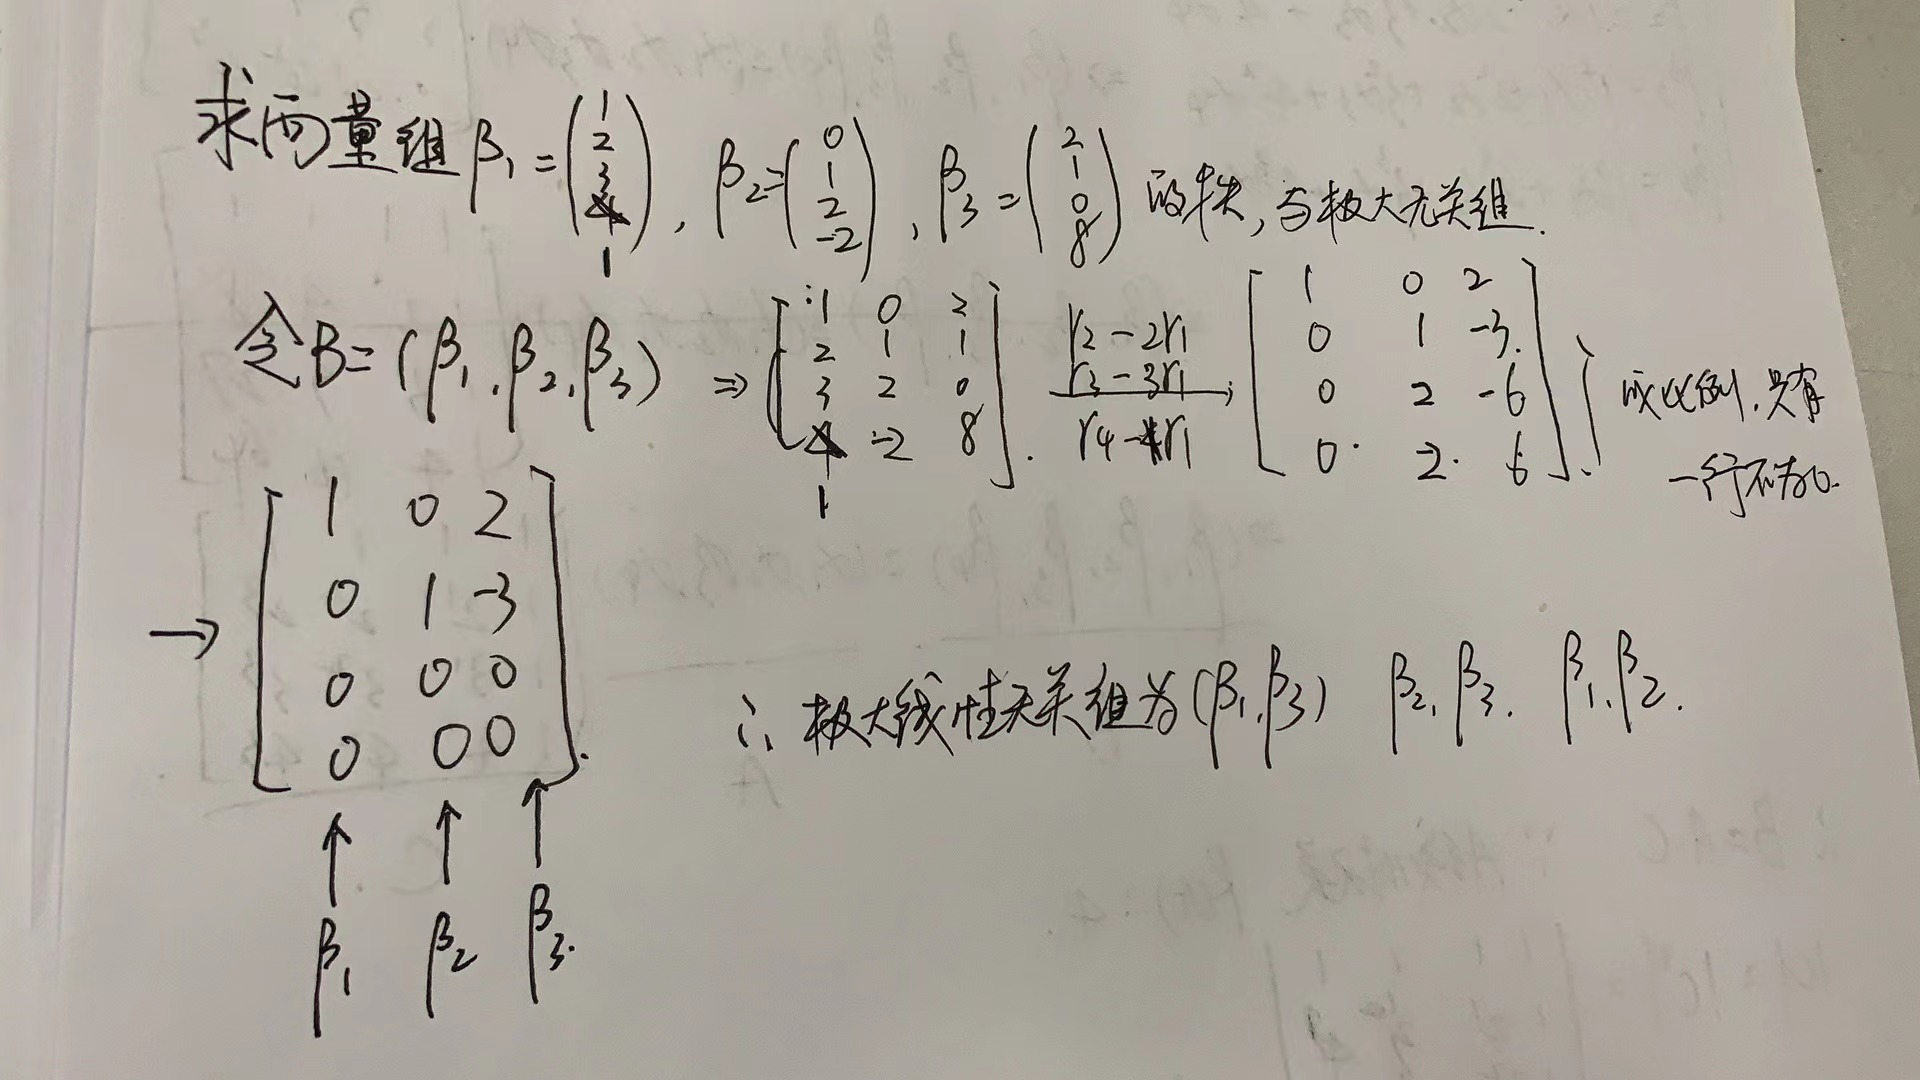 求向量组 β₁ = (1 2 3 1), β₂ = (0 1 2 -2), β₃ = (2 1 0 8) 的秩, 与极大无关组.
令 B = (β₁, β₂, β₃) ⇒ [1 0 2; 2 1 1; 3 2 0; 1 -2 8]. r₂-2r₁ r₃-3r₁ r₄-r₁ → [1 0 2; 0 1 -3; 0 2 -6; 0 -2 6] } 成比例, 只有
一行不为0.
→ [1 0 2; 0 1 -3; 0 0 0; 0 0 0].
∴ 极大线性无关组为 (β₁, β₃) β₂, β₃. β₁, β₂.
↑ ↑ ↑
β₁ β₂ β₃.